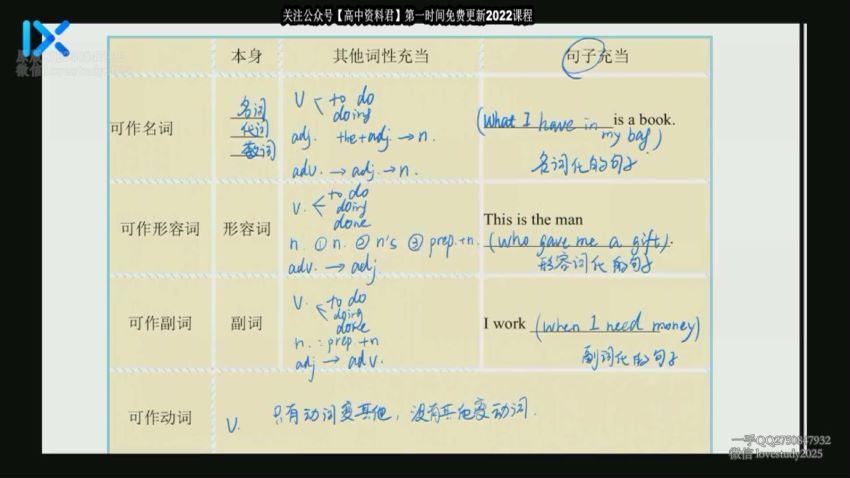 关注公众号【高中资料君】第一时间免费更新2022课程
微信lovestudy2025
本身 其他词性充当 句子充当
可作名词
名词
代词
数词
V to do
doing
adj. the+adj. → n.
adv. → adj. → n.
(What I have in my bag) is a book.
名词化的句子
可作形容词 形容词
V. to do
doing
done
n. ① n. ② n's ③ prep.+n.
adv. → adj.
This is the man
(who gave me a gift).
形容词化的句子
可作副词 副词
V. to do
doing
done
n. : prep.+n
adj → adv.
I work (when I need money)
副词化的句子
可作动词 V. 只有动词变其他，没有其他变动词.
一手QQ2730847932
微信 lovestudy2025